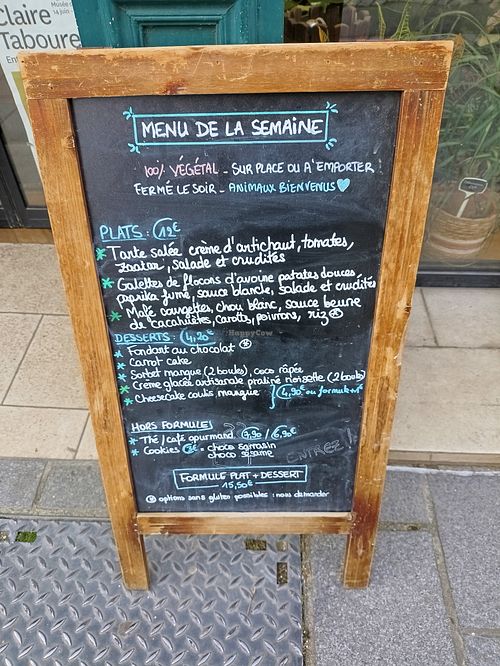 Claire
Tabouret
MENU DE LA SEMAINE
100% VÉGÉTAL _ SUR PLACE OU A EMPORTER
FERMÉ LE SOIR _ ANIMAUX BIENVENUS
PLATS : 12€
* Tarte salée crème d'artichaut, tomates,
zaatar, salade et crudités
* Galettes de flocons d'avoine patates douces
paprika fumé, sauce blanche, salade et crudités
* Mafé courgettes, chou blanc, sauce beurre
de cacahuètes, carotts, poivrons, riz *
DESSERTS : 4,20€
* Fondant au chocolat *
* Carrot cake
* Sorbet mangue (2 boules), coco râpée
* Crème glacée artisanale praliné noisette (2 boules)
* Cheesecake coulis mangue 4,90€ ou formule +1€
HORS FORMULES
* Thé / café gourmand 7,90 / 6,90€
* Cookies 2€ = choco sarrasin
choco sésame
ENTREZ !
FORMULE PLAT + DESSERT
15,50€
* options sans gluten possibles : nous demander
HappyCow